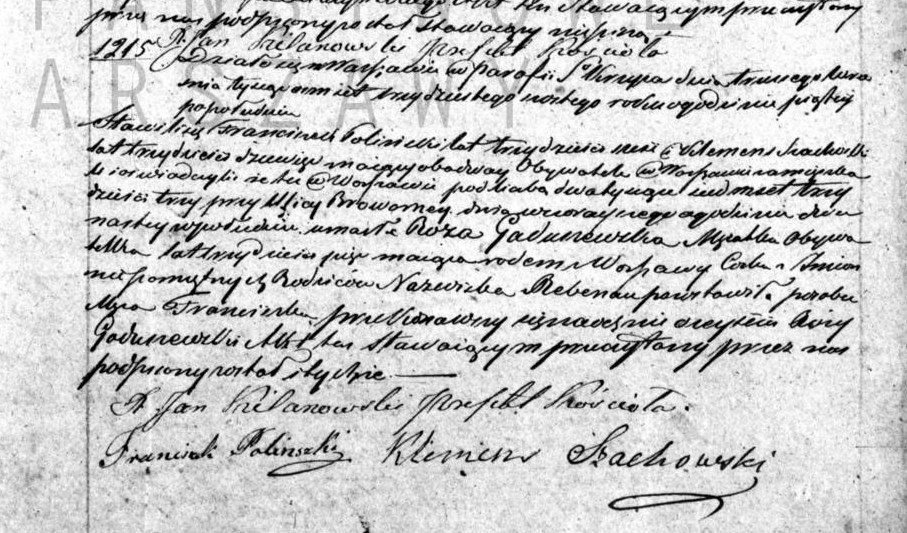 przez nas podpisany został Stawaiący niepisma
1215 X. Jan Kilanowski Prefekt Kościoła
Działo się w Warszawie w Parafii Sgo Krzyża dnia trzeciego
nia tysiąc osmset trzydziestego szostego roku o godzinie piątey
popołudniu
Stawili się Franciszek Polinski lat trzydzieści i Klemens Szachowski
lat trzydzieści dziewięć maiący obadway Obywatele w Warszawie zamieszka
li i oświadczyli że tu w Warszawie pod liczbą dwa tysiące siedmset trzy
dzieści trzy przy Ulicy Browarney dnia wczorayszego o godzinie dwu
nastey w południe umarła Róża Gadunewska Mężatka Obywa
telka lat trzydzieści pięć maiąca rodem z Warszawy Corka z Imion
niepomiętnych Rodziców Nazwiska Rebenau pozostawiła po sobie
Męża Franciszka przekonawszy się naocznie o zeyściu Róży
Gadunewski Akt ten Stawaiącym przeczytany przez nas
podpisany został i tychże
X. Jan Kilanowski Prefekt Kościoła.
Franciszek Polinszki Klemens Szachowski